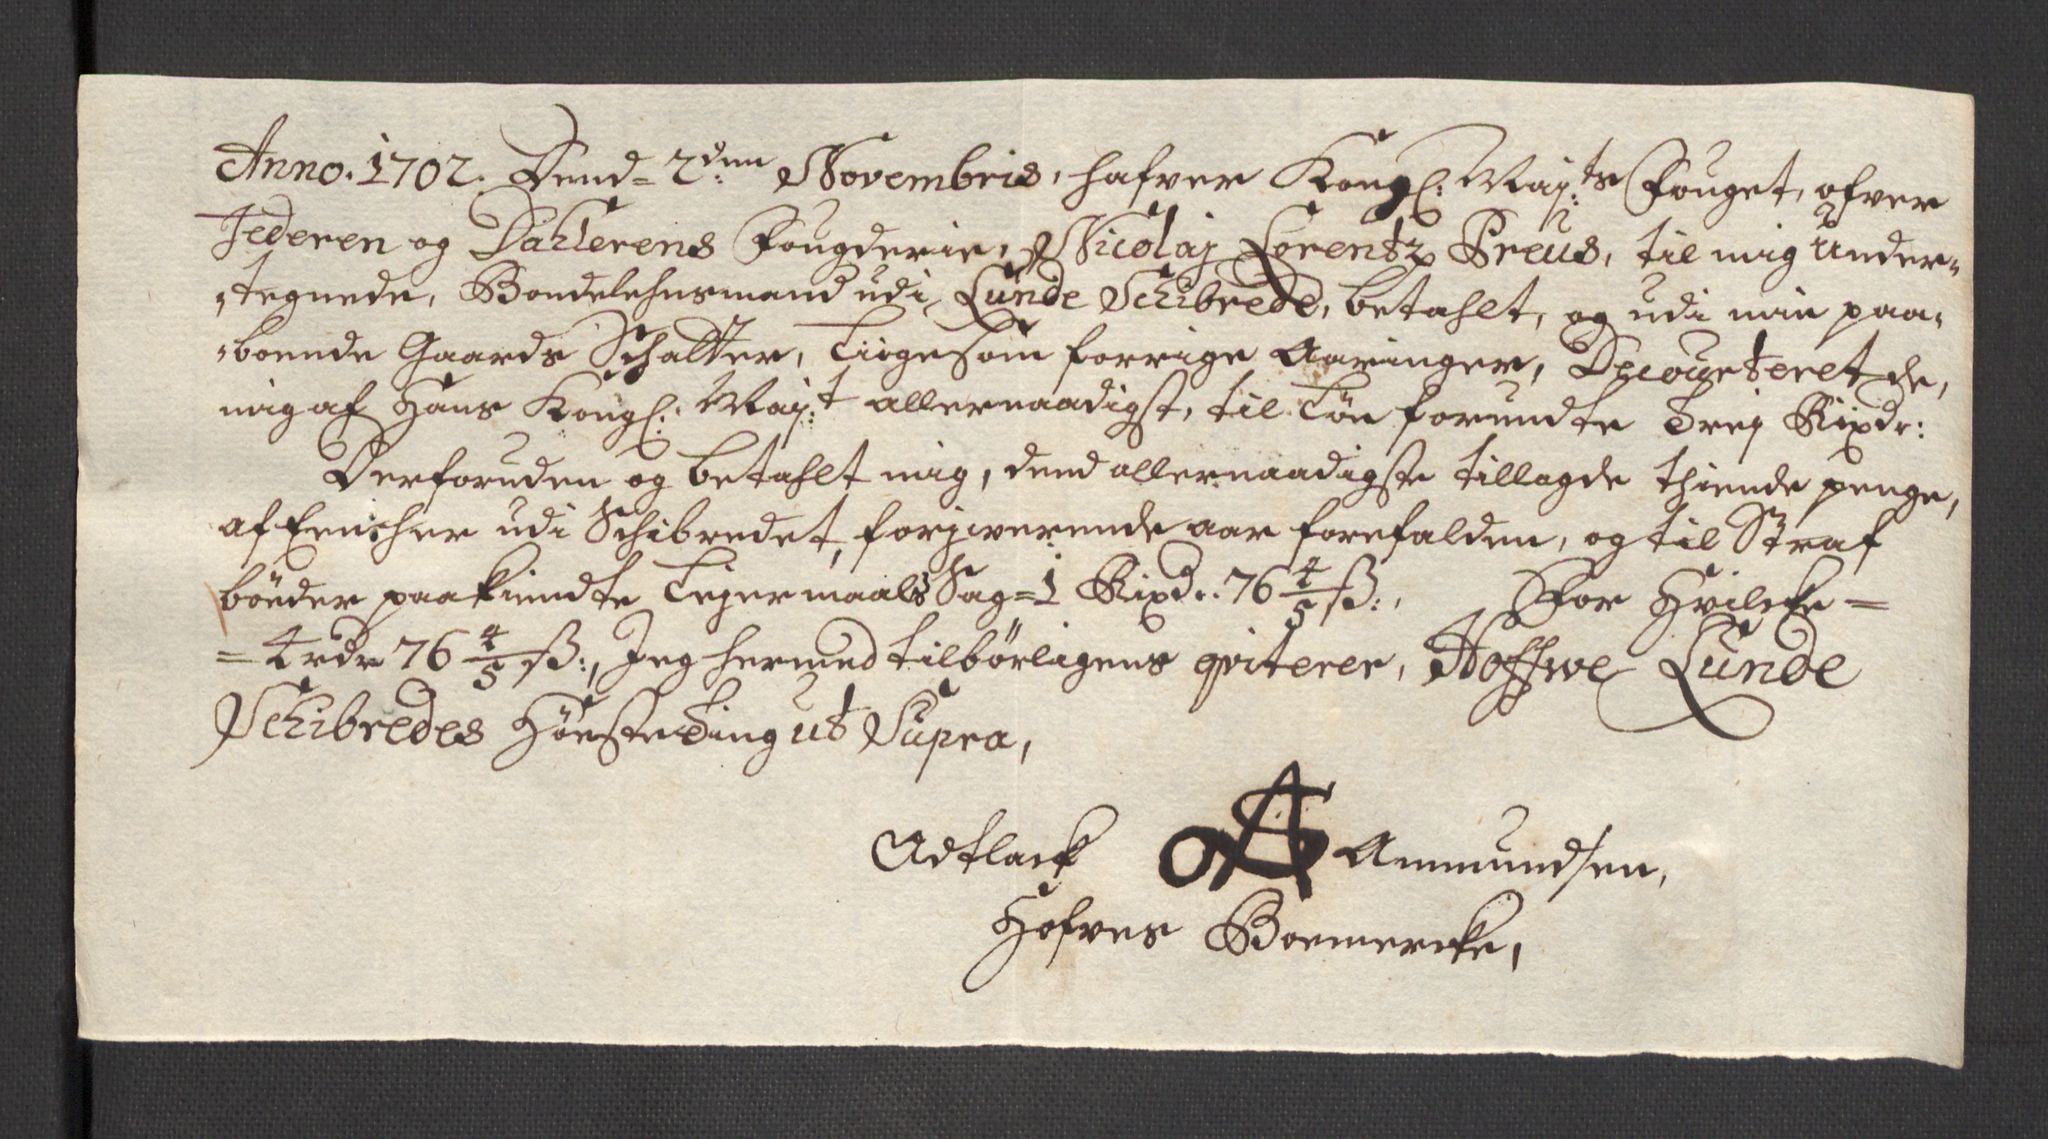 Anno. 1702. Dend= 2den Novembris, hafver Kongl: Maj:ts Fouget, ofver
Jederen og Dahlerens Fougderie, Nicolaj Lorentz Preus, til mig Under„
„tegnede, Bondelehnsmand udi Lunde Schibrede, betahlt, og udi min paa„
„boende Gaards Schatter, Liigesom forrige Aaringer, Decourteret de,
mig af Hans Kongl: Maj:t allernaadigst, til Løn forundte Trej Rixdr:
Derforuden og betahlt mig, dend allernaadigste tillagde thiende penge,
af udi Schibredet, forjwerende aar forefalden, og til Straf
bøeder paakiendte Lejermaals Sag=1 Rixdr. 76 4/5 ß:, For Hvilcke=
=4 rdr 76 4/5 ß:, Jeg hermed tilbørligens qviterer, Hoffwe Lunde
Schibredes Høste Ting ut Supra,
Adtlack AAS Ammundsen,
Hofves Boemercke,